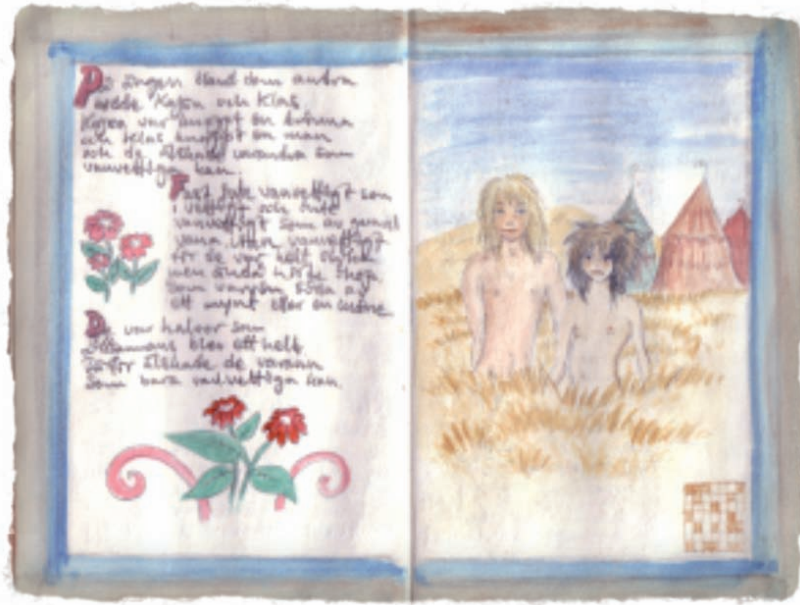 På ängen bland dem andra
Kajsa och Klas
Kajsa var knappt en kvinna
och Klas knappt en man
och de älskade varandra som
kan.
Fast inte vanvettigt som
i och inte
vanvettigt som av gammal
vana. Utan vanvettigt
för de var helt olika
men ändå hörde ihop
som varsin sida av
ett mynt eller en
De var halvor som
tillsammans blev ett helt
Därför älskade de varann
som bara vanvettiga kan.